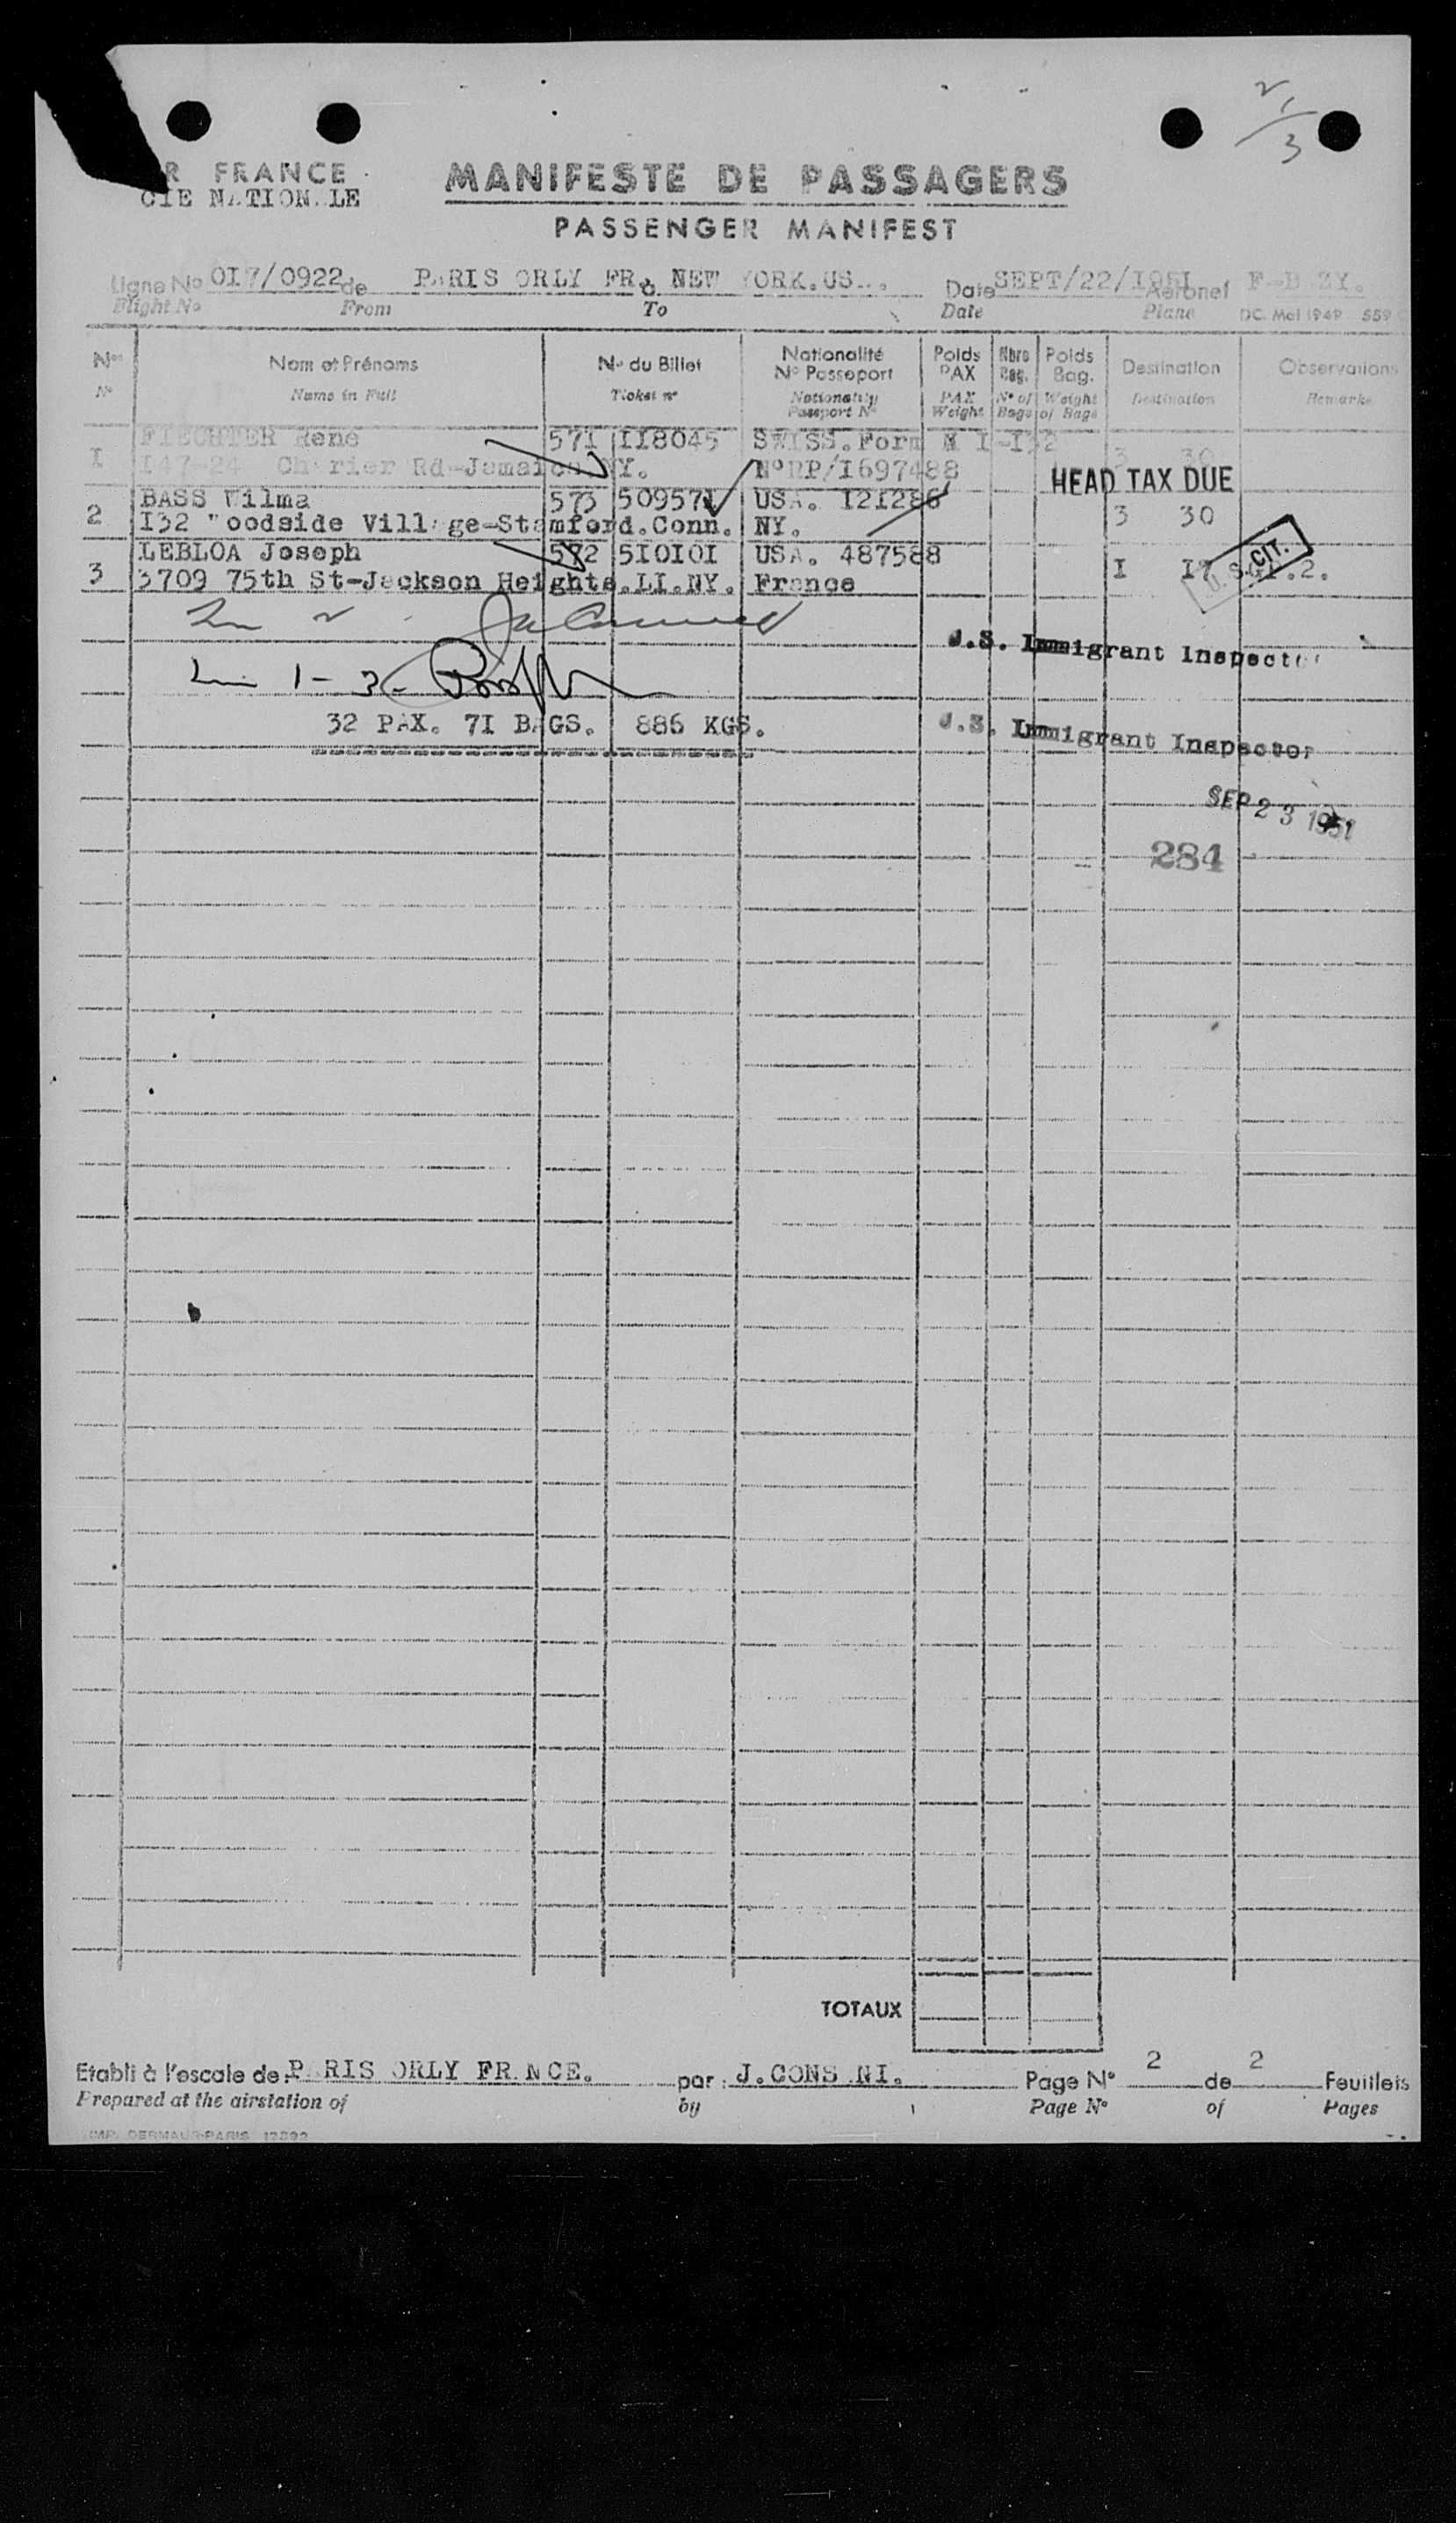 R FRANCE
CIE NATION LE
2 1/3
MANIFESTE DE PASSAGERS
PASSENGER MANIFEST
Ligne No OI7/0922 de PARIS ORLY FR. NEW YORK.US. Date SEPT/22/1951 Aéronef F-B ZY.
Flight No From To Date Plane DC. Mel 1949 559
Nos Nom et Prénoms No du Billet Nationalité No Passeport Poids PAX Nbre Bag. Poids Bag. Destination Observations
No Name in Full Ticket no Nationality Passport No PAX Weight No of Bags Weight of Bags Destination Remarks
I FIECHTER René 571 II8045 SWISS. Form I-I32 3 30
I47-24 Ch rier Rd-Jamaica NY. No RP/I697488
HEAD TAX DUE
2 BASS Wilma 573 509571 USA. I21286 3 30
I32 oodside Village-Stamford.Conn. NY.
3 LEBLOA Joseph 572 5IOIOI USA. 487588 I I7
3709 75th St-Jackson Heights.LI.NY. France
U.S. CIT.
J.S. Immigrant Inspector
1-3
32 PAX. 7I BAGS. 886 KGS.
J.S. Immigrant Inspector
SEP 23 1951
284
TOTAUX
Etabli à l'escale de P RIS ORLY FR NCE. par: J.CONS NI. Page No 2 de 2 Feuillets
Prepared at the airstation of by Page No of Pages
IMP. DERMAUX-PARIS